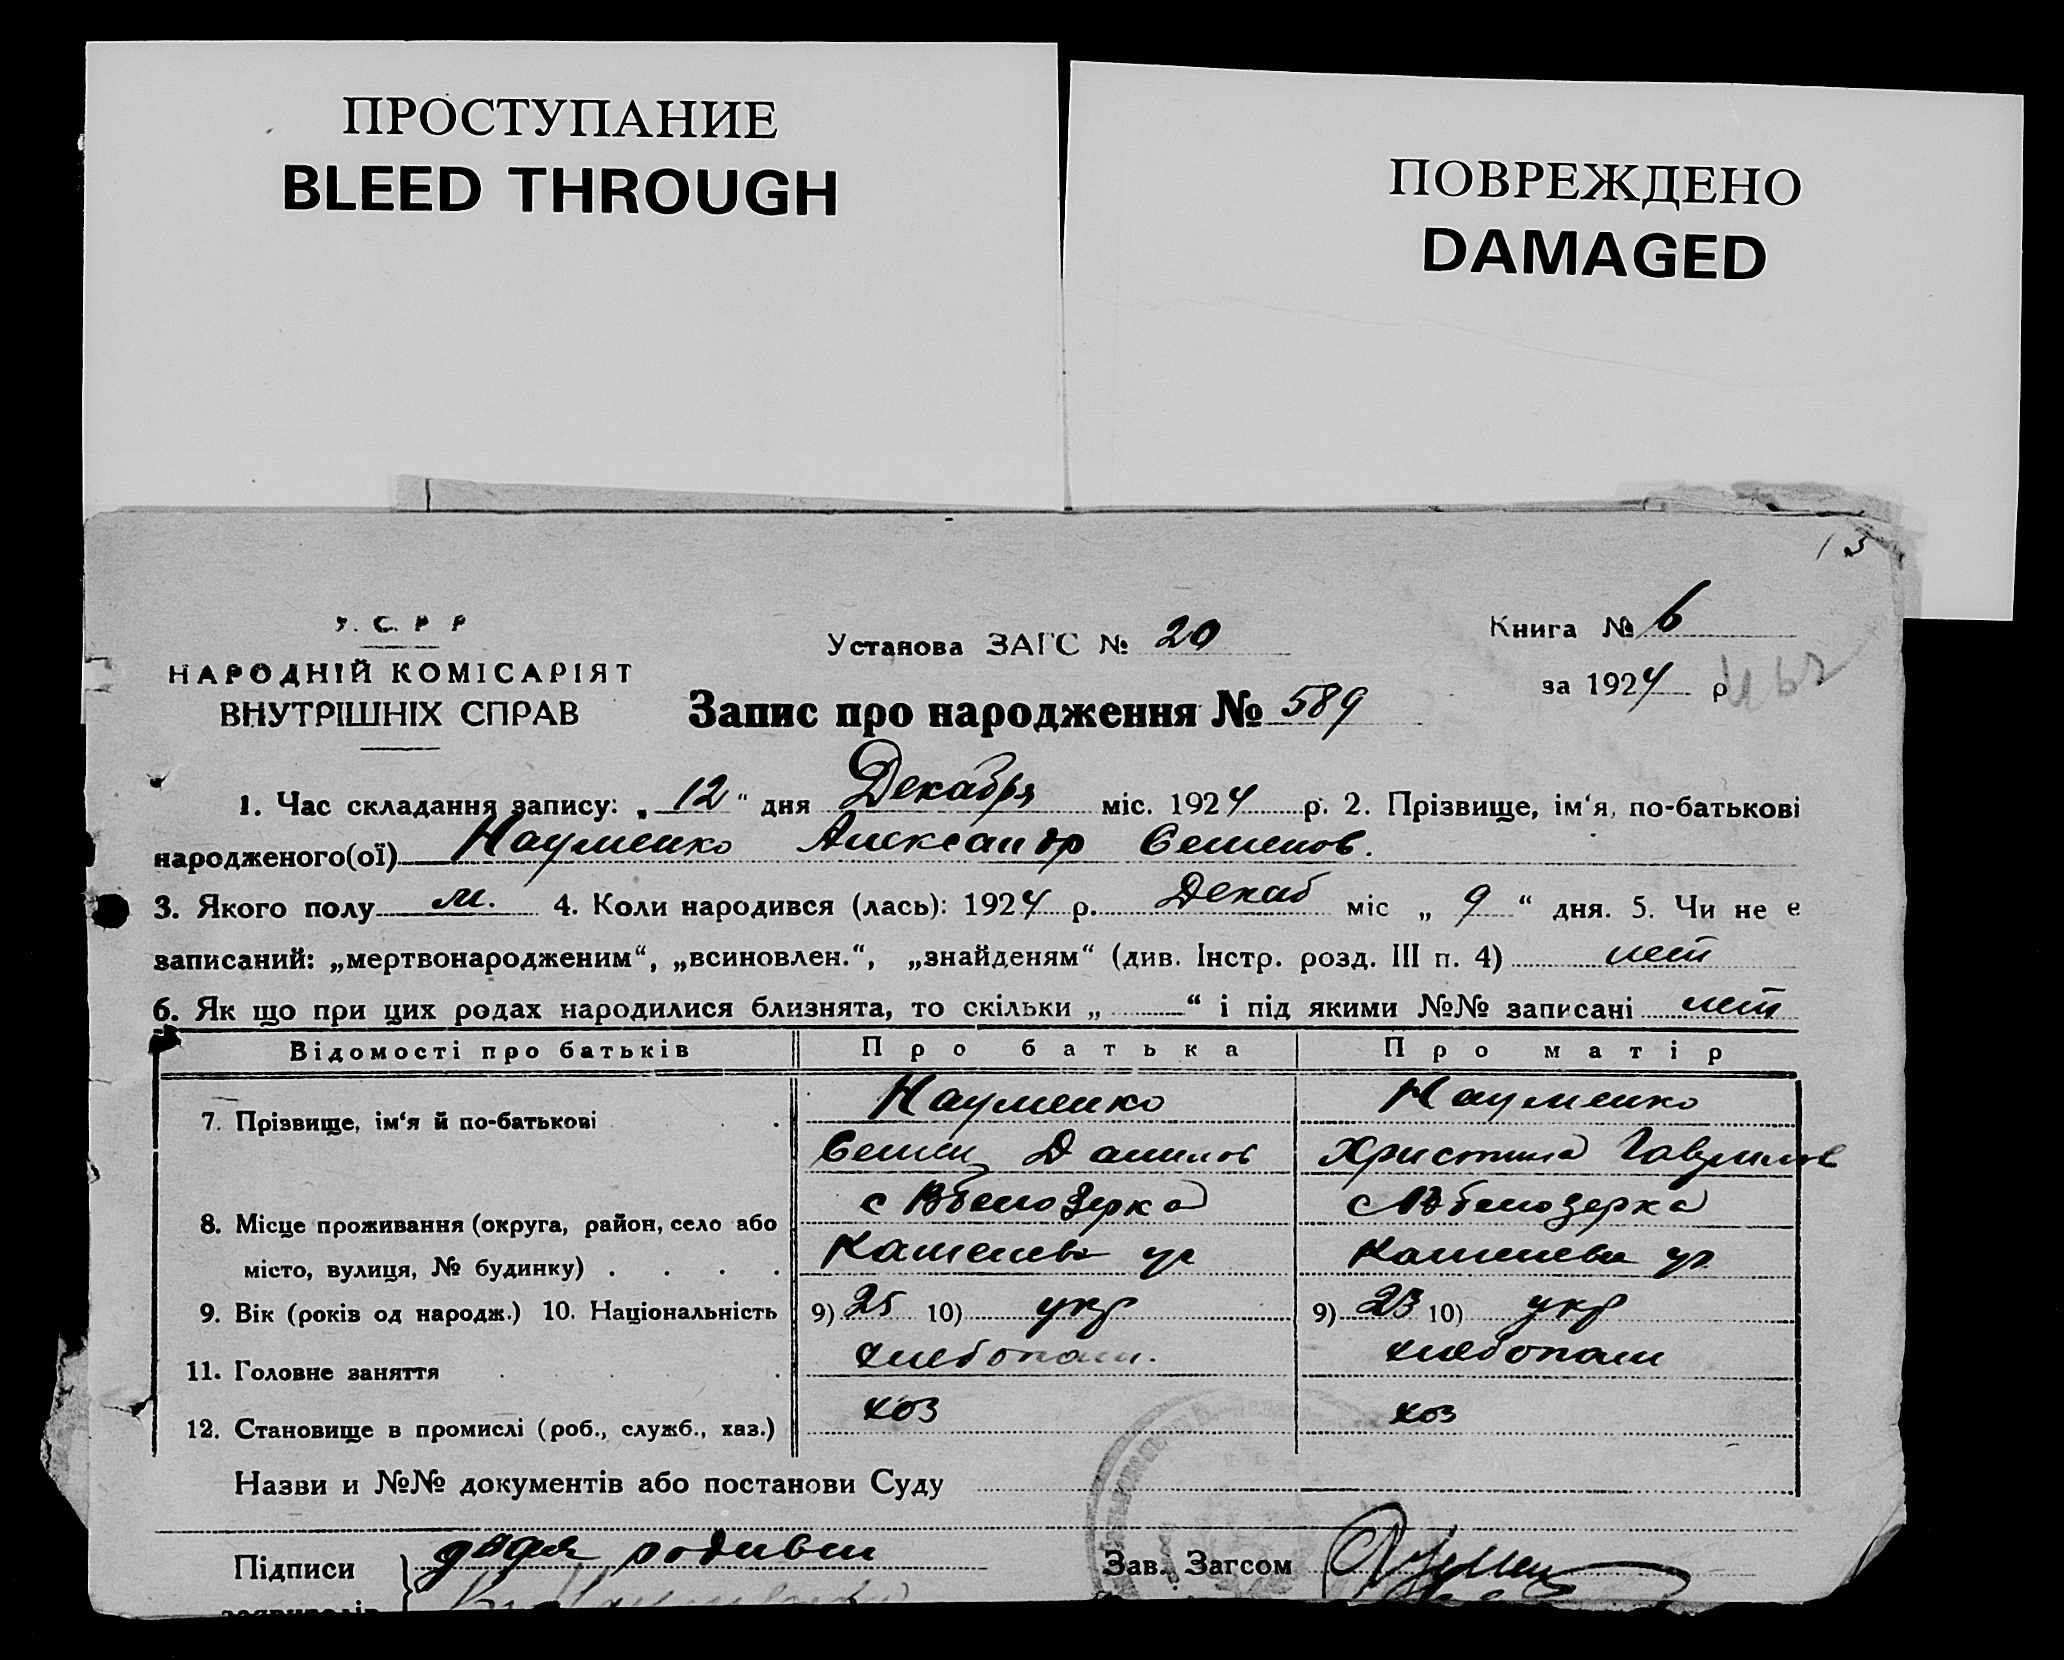 ПРОСТУПАНИЕ
BLEED THROUGH
ПОВРЕЖДЕНО
DAMAGED
13
У. С. Р Р
НАРОДНІЙ КОМІСАРІЯТ
ВНУТРІШНІХ СПРАВ
Установа ЗАГС № 20
Книга № 6
за 1924 р
Запис про народження № 589
1. Час складання запису: „ 12 “ дня Декабря міс. 1924 р. 2. Прізвище, ім‘я, по-батькові
народженого(ої) Науменко Александр Семенов.
3. Якого полу м. 4. Коли народився (лась): 1924 р. Декаб міс „ 9 “ дня. 5. Чи не е
записаний: „мертвонародженим“, „всиновлен.“, „знайденям“ (див. Інстр. розд. III п. 4) нет
6. Як що при цих родах народилися близнята, то скільки „ “ і під якими №№ записані нет
Відомості про батьків Про батька Про матір
7. Прізвище, ім‘я й по-батькові
Науменко Науменко
Семен Данилов Христина Гаврилов
8. Місце проживання (округа, район, село або
місто, вулиця, № будинку)
с Вбелозерка с Вбелозерка
9. Вік (років од народж.) 10. Національність 9) 25 10) укр 9) 23 10) укр
11. Головне заняття хлебопаш. хлебопаш
12. Становище в промислі (роб., служб., хаз.) хоз хоз
Назви и №№ документів або постанови Суду
Підписи дядя родивш Зав. Загсом
заявителів